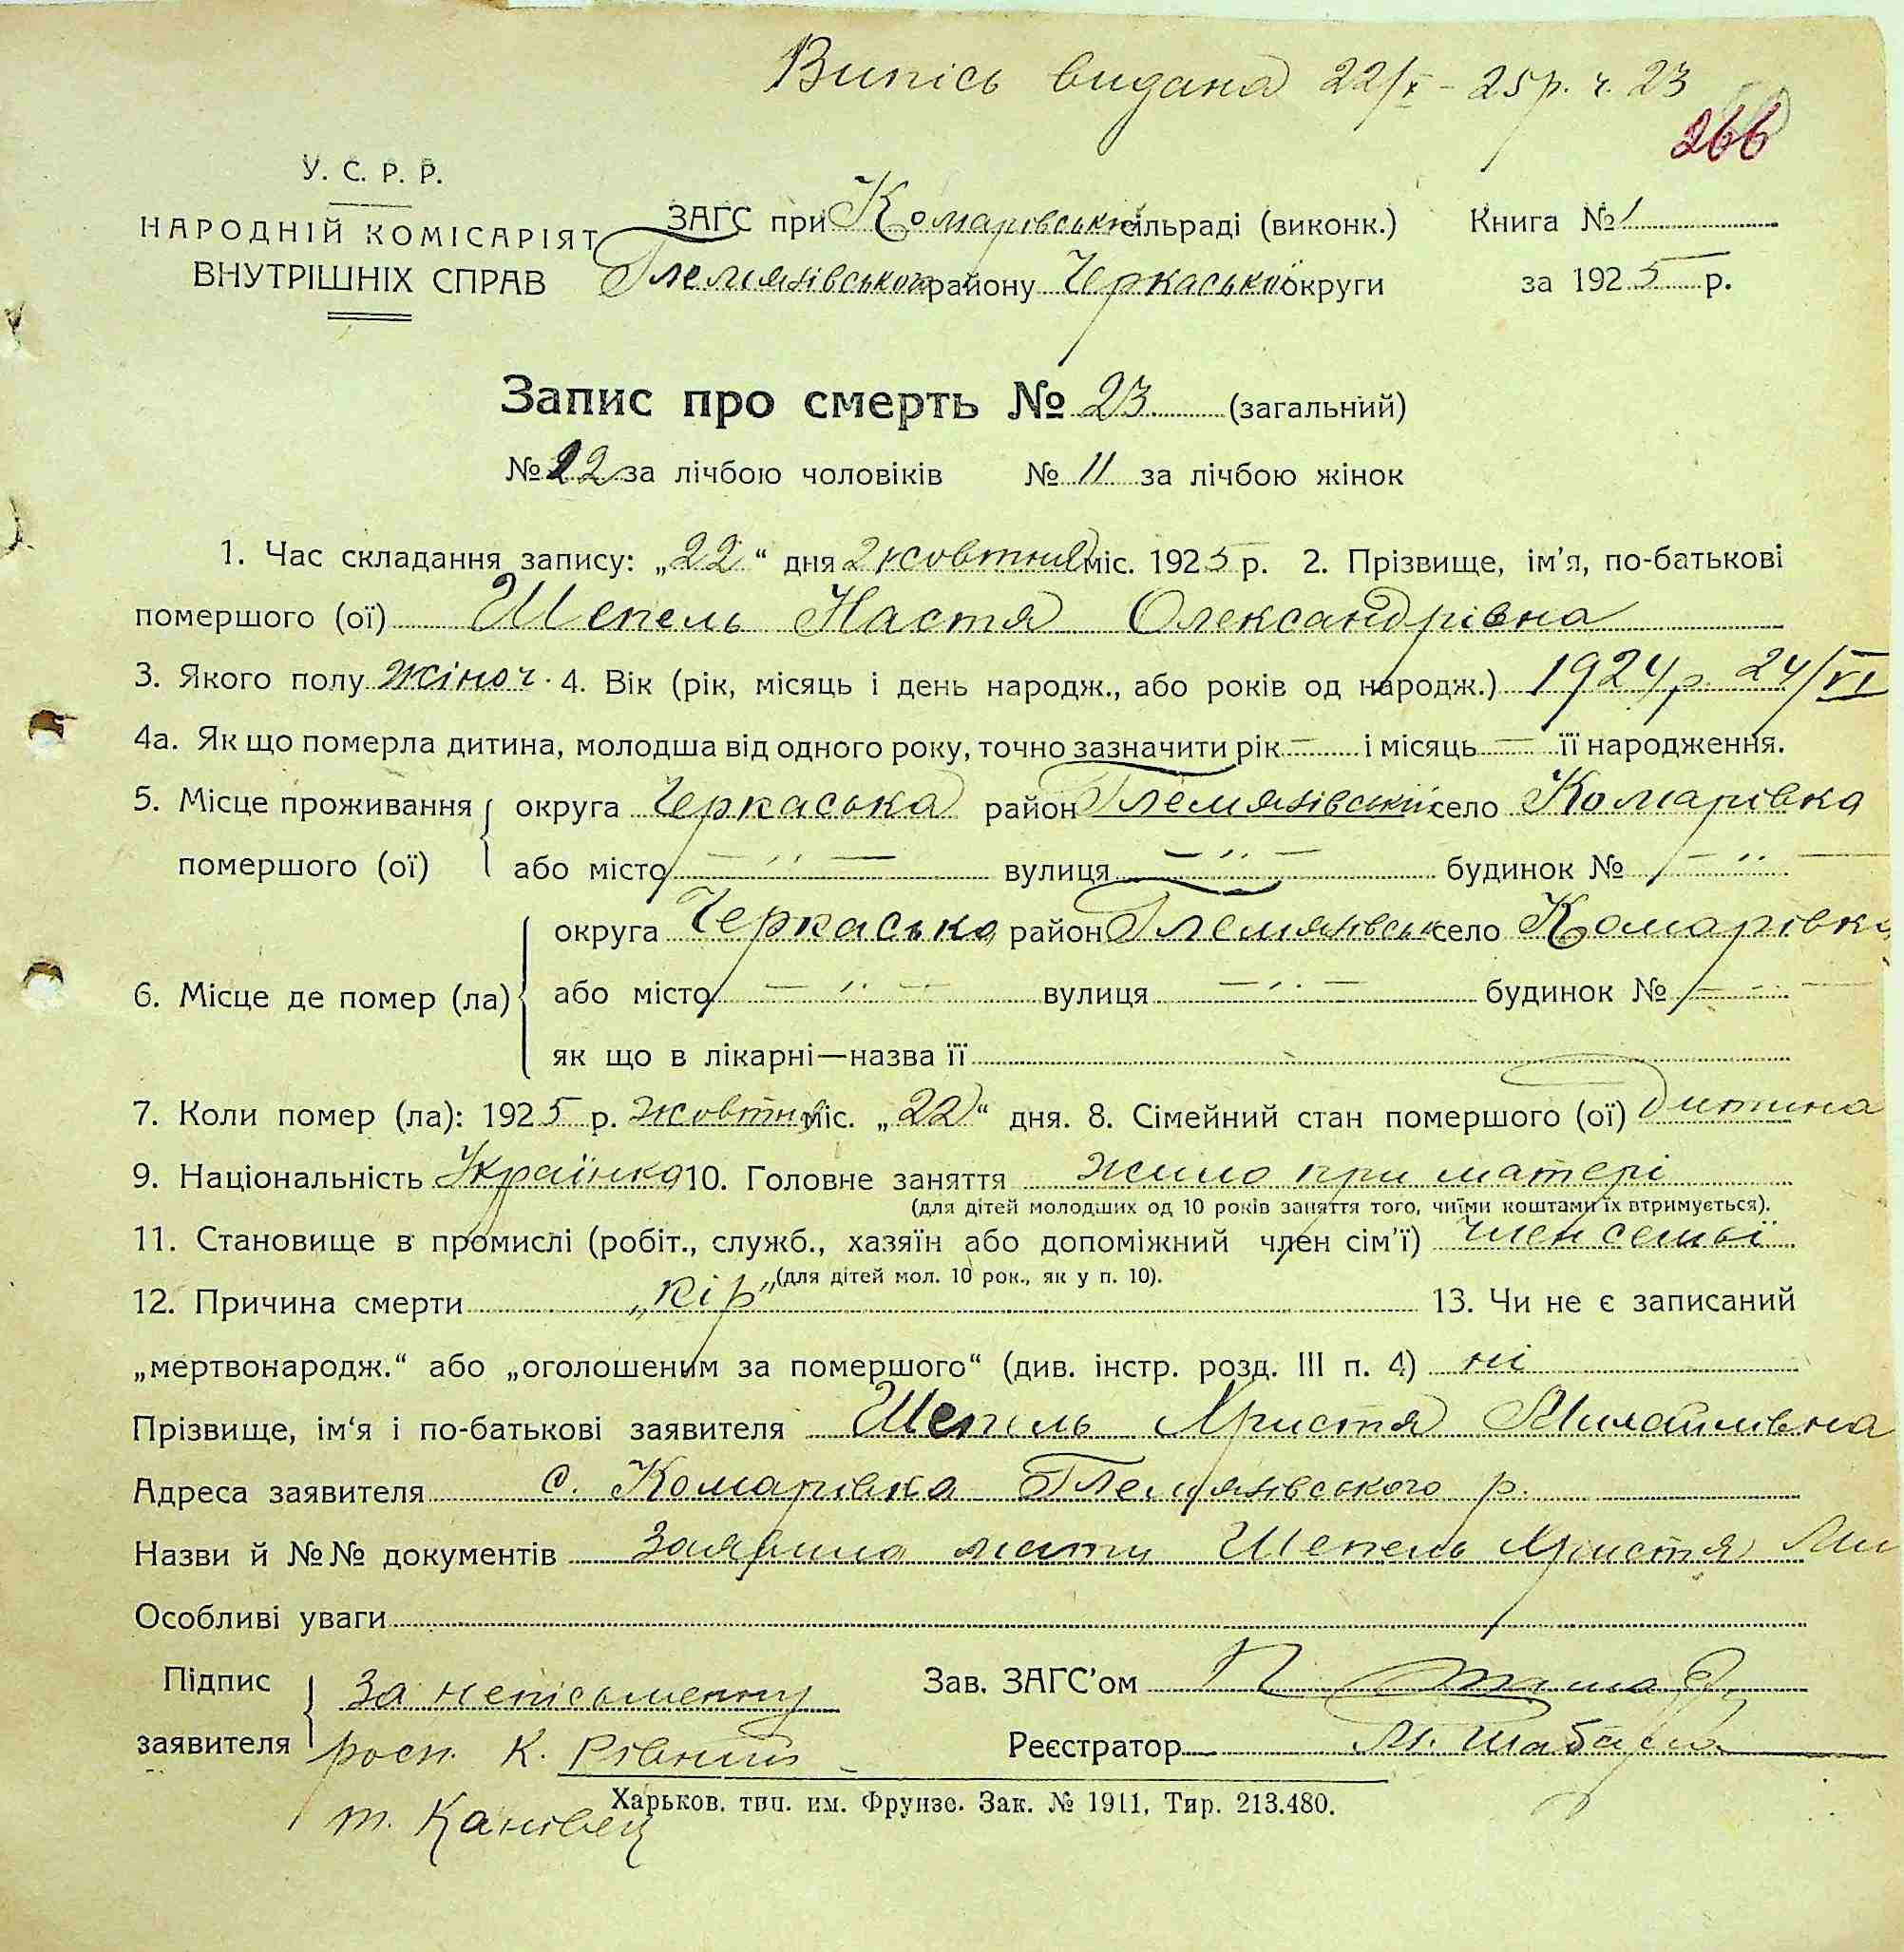 Випісь видана 22/X - 25р. ч. 23
266
У. С. Р. Р.
НАРОДНІЙ КОМІСАРІЯТ
ВНУТРІШНІХ СПРАВ
ЗАГС при Комарівській сільраді (виконк.) Книга № 1
Глемязівського району Черкаської округи за 1925 р.
Запис про смерть № 23 (загальний)
№ 12 за лічбою чоловіків № 11 за лічбою жінок
1. Час складання запису: „22“ дня жовтня міс. 1925 р. 2. Прізвище, ім’я, по-батькові
помершого (ої) Шепель Настя Олександрівна
3. Якого полу жіноч. 4. Вік (рік, місяць і день народж., або років од народж.) 1924 р. 24/VI
4а. Як що померла дитина, молодша від одного року, точно зазначити рік — і місяць — її народження.
5. Місце проживання округа Черкаська район Глемязівський село Комарівка
помершого (ої) або місто — „ — вулиця — „ — будинок № — „ —
округа Черкаська район Глемязівськ село Комарівка
6. Місце де помер (ла) або місто — „ — вулиця — „ — будинок № — „ —
як що в лікарні—назва її
7. Коли помер (ла): 1925 р. жовтня міс. „22“ дня. 8. Сімейний стан помершого (ої) Дитина
9. Національність Українка 10. Головне заняття жило при матері
(для дітей молодших од 10 років заняття того, чиїми коштами їх втримується).
11. Становище в промислі (робіт., служб., хазяїн або допоміжний член сім’ї) член семьї
(для дітей мол. 10 рок., як у п. 10).
12. Причина смерти „кір“ 13. Чи не є записаний
„мертвонародж.“ або „оголошеним за помершого“ (див. інстр. розд. III п. 4) ні
Прізвище, ім‘я і по-батькові заявителя Шепель Христя Михайлівна
Адреса заявителя с. Комарівка Глемязівського р.
Назви й №№ документів Заявила мати Шепель Христя Ми
Особливі уваги
Підпис за неписьменну Зав. ЗАГС’ом П
заявителя росп. К. Рівний Реєстратор М.
т. Канівец
Харьков. тип. им. Фрунзе. Зак. № 1911, Тир. 213.480.